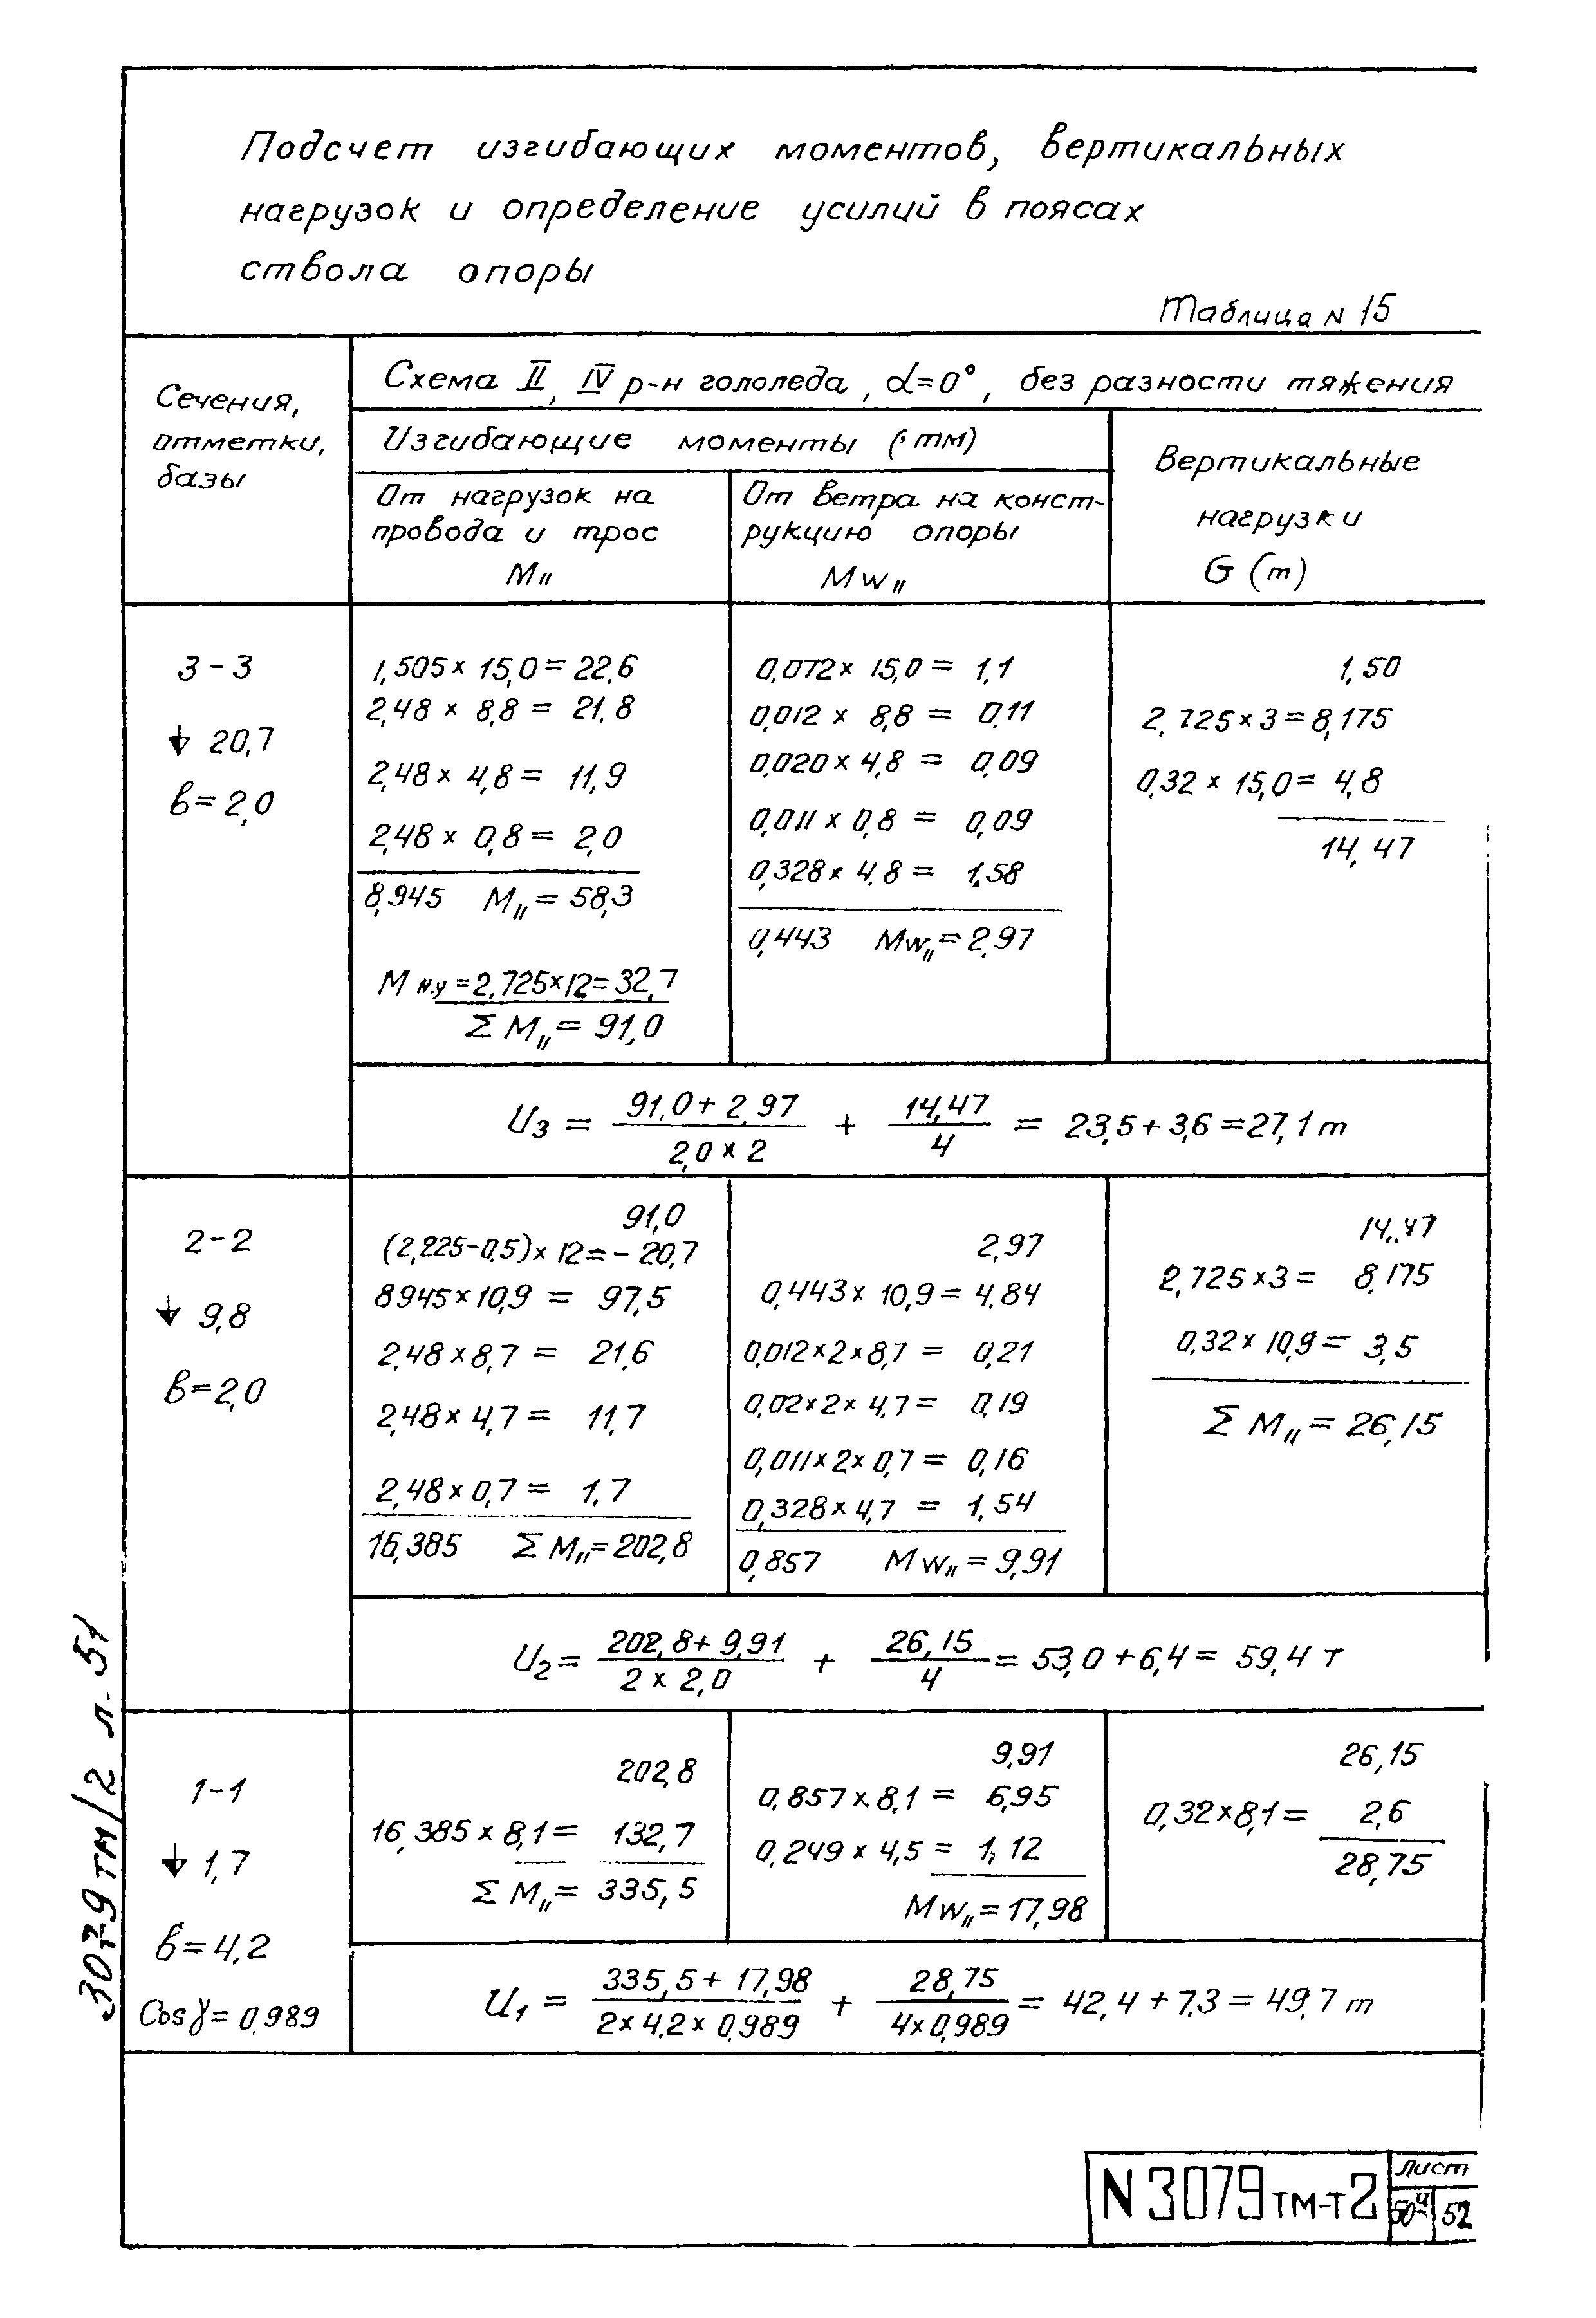 Подсчет изгибающих моментов, вертикальных
нагрузок и определение усилий в поясах
ствола опоры
Таблица N 15
Сечения,
отметки,
базы
Схема II, IV р-н гололеда, α=0°, без разности тяжения
Изгибающие моменты (тм)
От нагрузок на
провода и трос
M II
От ветра на конст-
рукцию опоры
Mw II
Вертикальные
нагрузки
G (т)
3-3
20,7
в=2,0
1,505×15,0=22,6
2,48×8,8=21,8
2,48×4,8=11,9
2,48×0,8=2,0
8,945 M II=58,3
M н.у=2,725×12=32,7
Σ M II=91,0
0,072×15,0=1,1
0,012×8,8=0,11
0,020×4,8=0,09
0,011×0,8=0,09
0,328×4,8=1,58
0,443 Mw II=2,97
1,50
2,725×3=8,175
0,32×15,0=4,8
14,47
U3 = (91,0+2,97)/(2,0×2) + 14,47/4 = 23,5+3,6=27,1 т
2-2
9,8
в=2,0
91,0
(2,225-0,5)×12=-20,7
8945×10,9=97,5
2,48×8,7=21,6
2,48×4,7=11,7
2,48×0,7=1,7
16,385 Σ M II=202,8
2,97
0,443×10,9=4,84
0,012×2×8,7=0,21
0,02×2×4,7=0,19
0,011×2×0,7=0,16
0,328×4,7=1,54
0,857 Mw II=9,91
14,47
2,725×3=8,175
0,32×10,9=3,5
Σ M II=26,15
U2= (202,8+9,91)/(2×2,0) + 26,15/4 = 53,0+6,4= 59,4 т
1-1
1,7
в=4,2
Cos γ=0,989
202,8
16,385×8,1=132,7
Σ M II=335,5
9,91
0,857×8,1=6,95
0,249×4,5=1,12
Mw II=17,98
26,15
0,32×8,1=2,6
28,75
U1 = (335,5+17,98)/(2×4,2×0,989) + 28,75/(4×0,989) = 42,4+7,3=49,7 т
3079тм/2 л. 51
N 3079тм-т2
Лист
50а 52